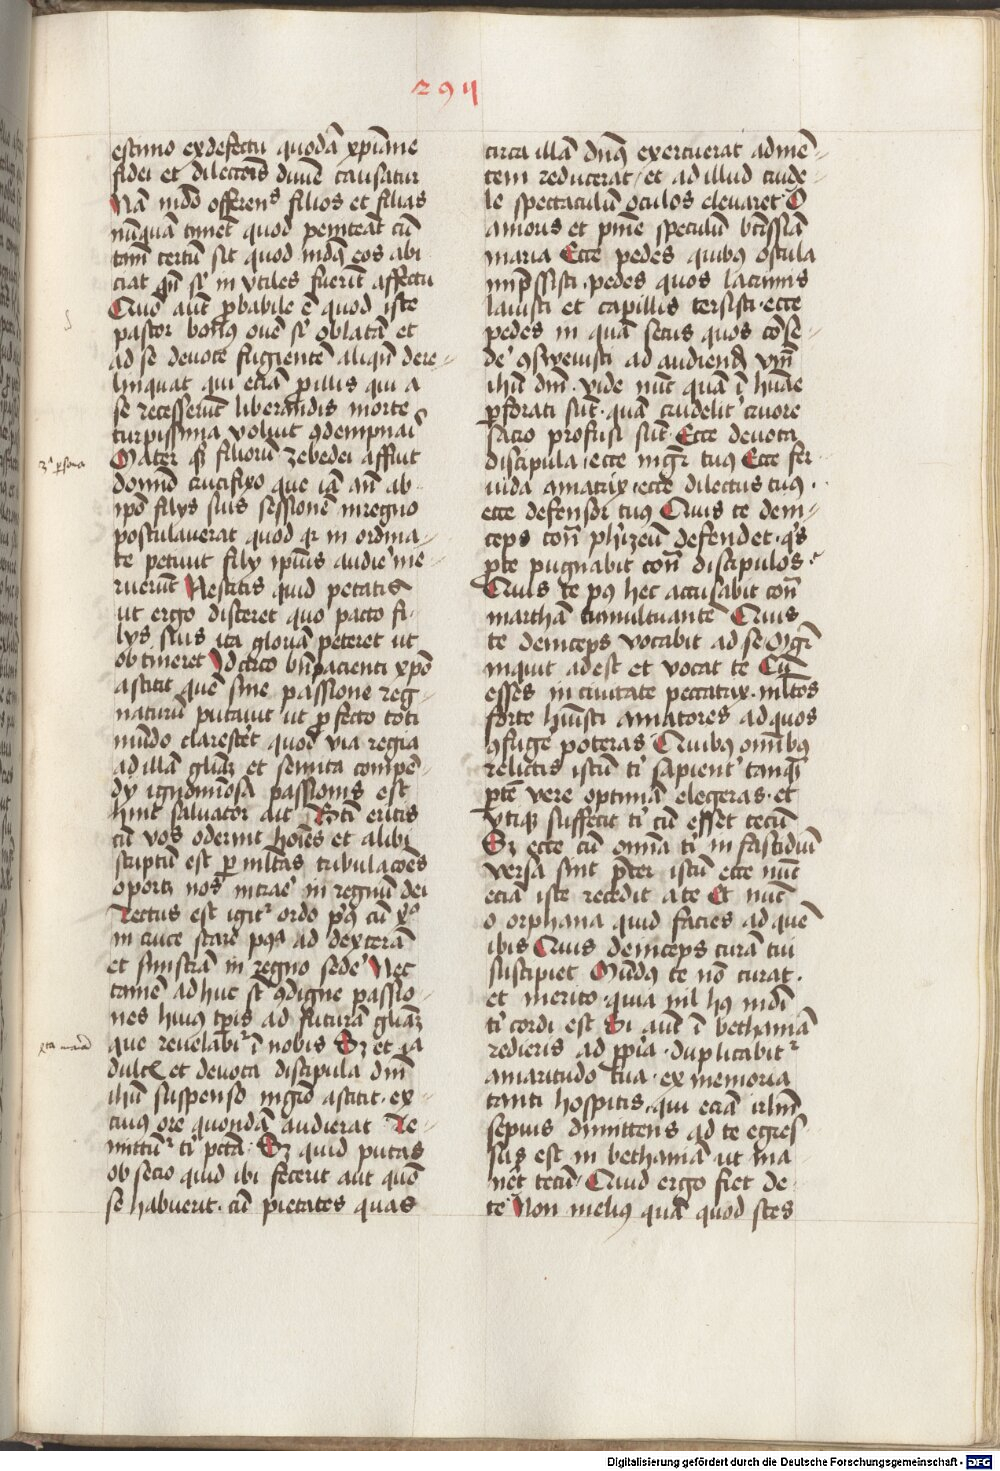 2911
estimo ex defectu quodā xp̄iane
fidei et dilectōis diuīe causatur
Nā nulłd offerens filios et filias
nūquā timet quod peniteāt cū
tam̄ certū sit quod nūdꝰ eos abi
ciat qn̄ sͥ in vtiles fuerīt affectu
Quō aūt ꝓbabile ē quod iste
pastor bonꝰ ouē sͥ oblatā et
ad se deuote fugientē aliqn̄ dere-
linquat qui eciā ꝓ illis qui a
se recesserūt liberandis morte
turpissima voluit ꝯdempnari
Mater qͥ filiorū zebedei affuit
3ᵃ ꝑsona
domīo crucifixo que iā an̄ ab
ip̄o filijs suis sessionē in regno
postulauerat quod qr in ordina-
te petiuit filij ip̄ius audire me-
ruerūt Nescitis quid petatis
ut ergo disceret quo pacto fi-
lijs suis ita gloriā peteret ut
obtineret Idcirco bn̄ pacienti xp̄o
astitit quē sine passione reg-
naturū putauit ut ꝑfecto toti
mūdo claresceret quod via regia
ad illā gliāʒ et semita compē-
dij ignominosā passionis est
hinc saluator ait Bti eritis
cū vos oderint hoīes et alibi
scriptū est ꝑ mltas tribulacōes
oportʒ nos intrare in regnū dei
Rectus est igitʳ ordo pͥꝰ cū xͦ
in cruce stare pꝰ ad dexterā
et sinistrā in regno sedere Nec
tamē adhuc st ꝯdigne passio-
nes huiꝰ tp̄is ad futurā gliāʒ
que reuelabitʳ ī nobis Sʒ et ia
dulcis et deuota discipula dn̄i
ihū suspenso mgrō astitit ex
cuiꝰ ore quondā audierat Re-
mittūtʳ tͥ pctā Sʒ quid putas
obsecro quid ibi fecerit aut quō
se habuerit cū pietates quas
circa illā dn̄s exercuerat ad mē-
tem reducerat et ad illud crude-
le spectaculū oculos eleuaret O
amoris et pnīe speculū btissīā
maria Ecce pedes quibꝰ oscula
imp̄ssisti pedes quos lacrimis
lauisti et capillis tersisti ecce
pedes in quā secus quos cōse-
dere ꝯsweuisti ad audiendū vm̄
ihū dn̄i vide nūc quā ī hūāe
ꝑforati sūt quā crudeliter cruore
sacro profusi sūt Ecce deuota
discipula ecce mgr̄ tuꝰ Ecce fer-
uida amatrix ecce dilectus tuꝰ
ecce defensor tuꝰ Quis te dein-
ceps con̄ phīzeū defendet qͥs
ꝑ te pugnabit con̄ discipulos
Quis te pꝰ hec accusabit con̄
marthā tumultuantē Quis
te deinceps vocabit ad se Mgr̄
inquit adest et vocat te Cū
esses in ciuitate peccatrix mltos
forte hūisti amatores ad quos
ꝯfugere poteras Quibꝰ omībꝰ
relictis istū tͥ sapienter tanqͣ
ꝑtē vere optimā elegeras et
vtiqʒ suffecit tͥ cū esset tecū
Sʒ ecce cū om̄ia tͥ in fastidiū
versa sint p̄ter istū ecce nūc
eciā iste recedit a te Et nūc
o orphana quid facies ad quē
ibis Quis deinceps curā tui
suscipiet Mūdꝰ te nō curat
et merito quia nil hꝰ mūdi
tͥ cordi est Si aūt ī bethaniā
redieris ad ꝓp̄ia duplicabitʳ
amaritudo tua ex memoria
tanti hospitis qui eciā irlm̄
sepius dimittens ad te egres-
sus est in bethaniā ut ma-
neret tecū Quid ergo fiet de
te Non meliꝰ quā quod stes
Digitalisierung gefördert durch die Deutsche Forschungsgemeinschaft - DFG